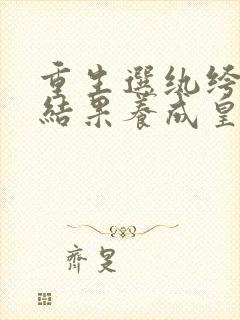 重生選紈絝
結果養成皇
齊旻